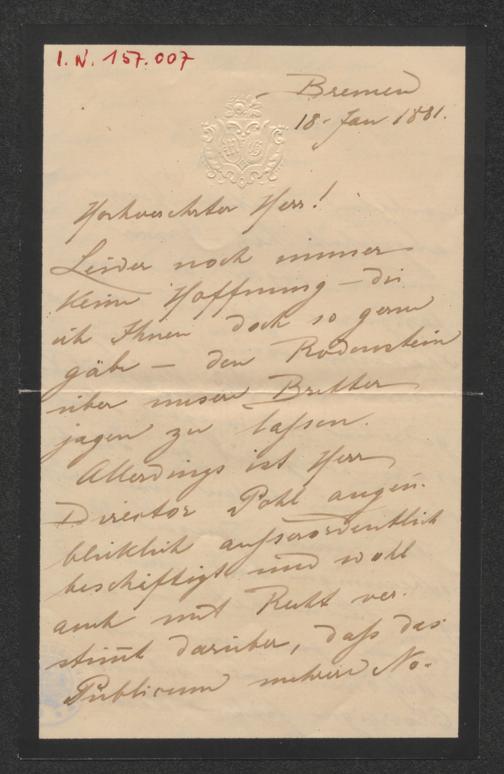 I.N. 157.007
Bremen
18. Jan 1881.
Hochverehrter Herr!
Leider noch immer
keine Hoffnung – die
ich Ihnen doch so gern
gäbe – den Rodenstein
über unsere Bretter
jagen zu laßen.
Allerdings ist Herr
Director Pohl augen-
blicklich außerordentlich
beschäftigt und wohl
auch mit Recht ver-
stimt darüber, daß das
Publicum mehrere No-